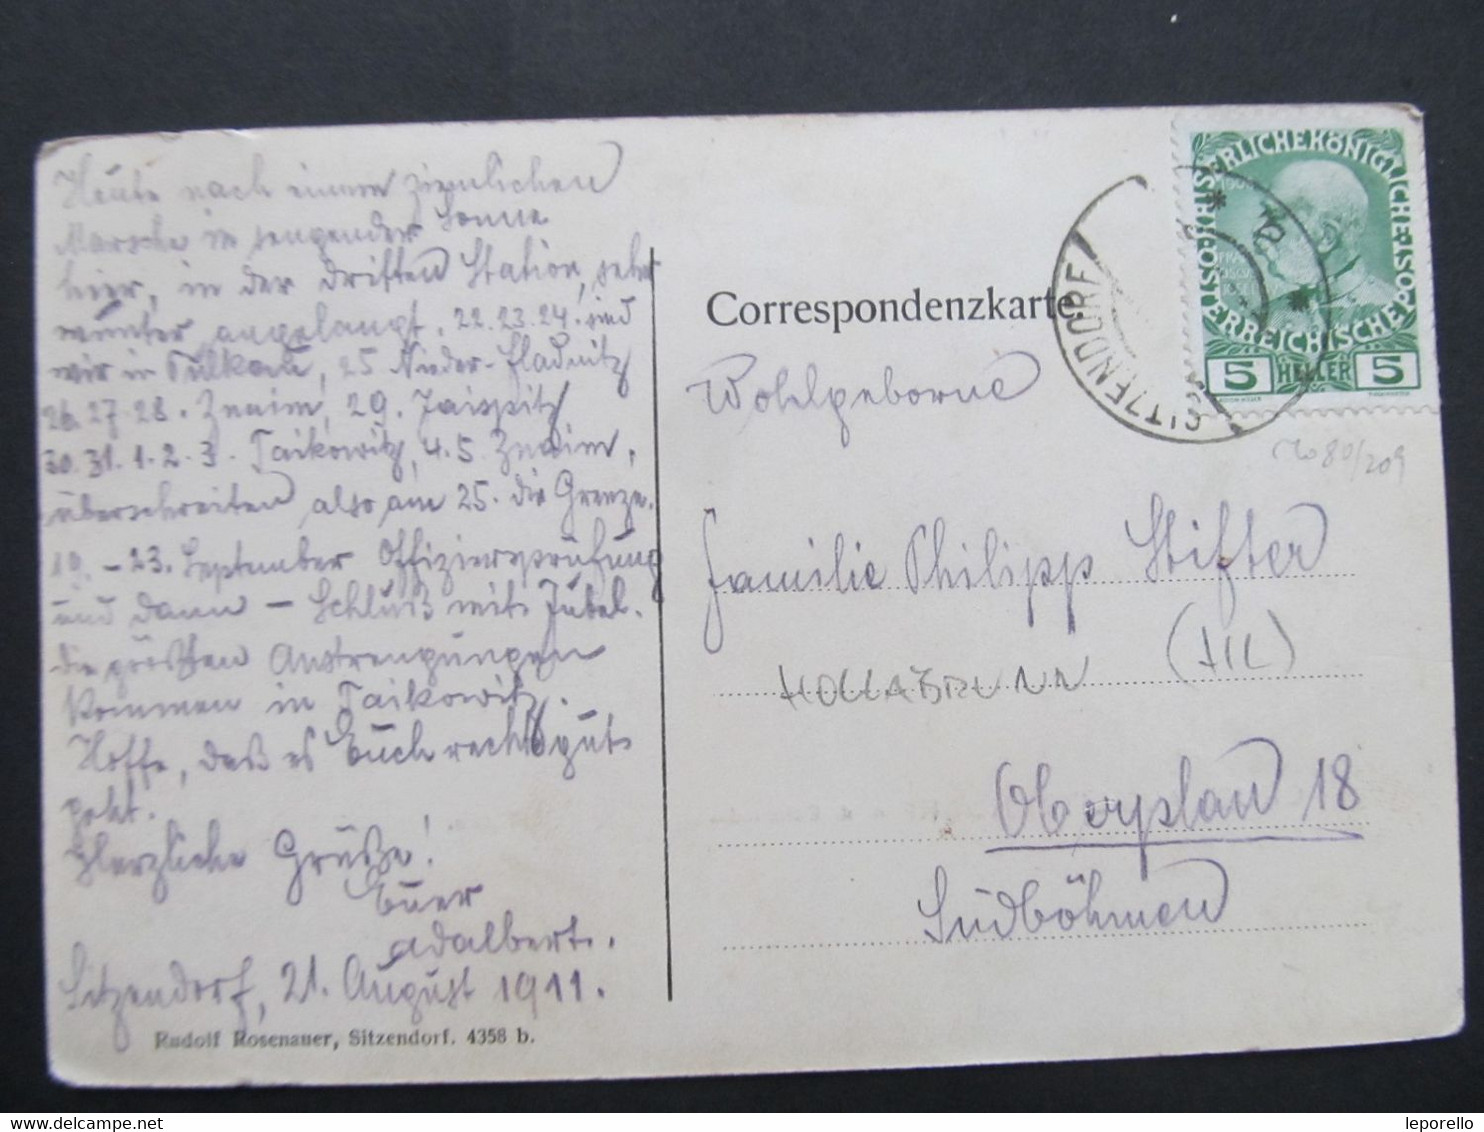 Heute nach einem ziemlichen
Marsche in sengender Sonne
hier, in der dritten Station, sehr
munter angelangt. 22. 23. 24. sind
wir in Pulkau, 25 Nieder-Fladnitz
26. 27. 28. Znaim, 29. Jaispitz
30. 31. 1. 2. 3. Taikowitz, 4. 5. Znaim,
überschreiten also am 25. die Grenze.
19. – 23. September Offiziersprüfung
und dann – Schluß mit Jubel.
die größten Anstrengungen
kommen in Taikowitz.
Hoffe, daß es Euch recht gut
geht.
Herzliche Grüße!
Euer
Adalbert.
Sitzendorf, 21. August 1911.
Rudolf Rosenauer, Sitzendorf. 4358 b.
Correspondenzkarte.
KAISERLICHE KÖNIGLICHE ÖSTERREICHISCHE POST
5 HELLER 5
SITZENDORF
80/209
Wohlgeborne
Familie Philipp Stifter
HOLLABRUNN
Oberplan 18
Südböhmen
leporello